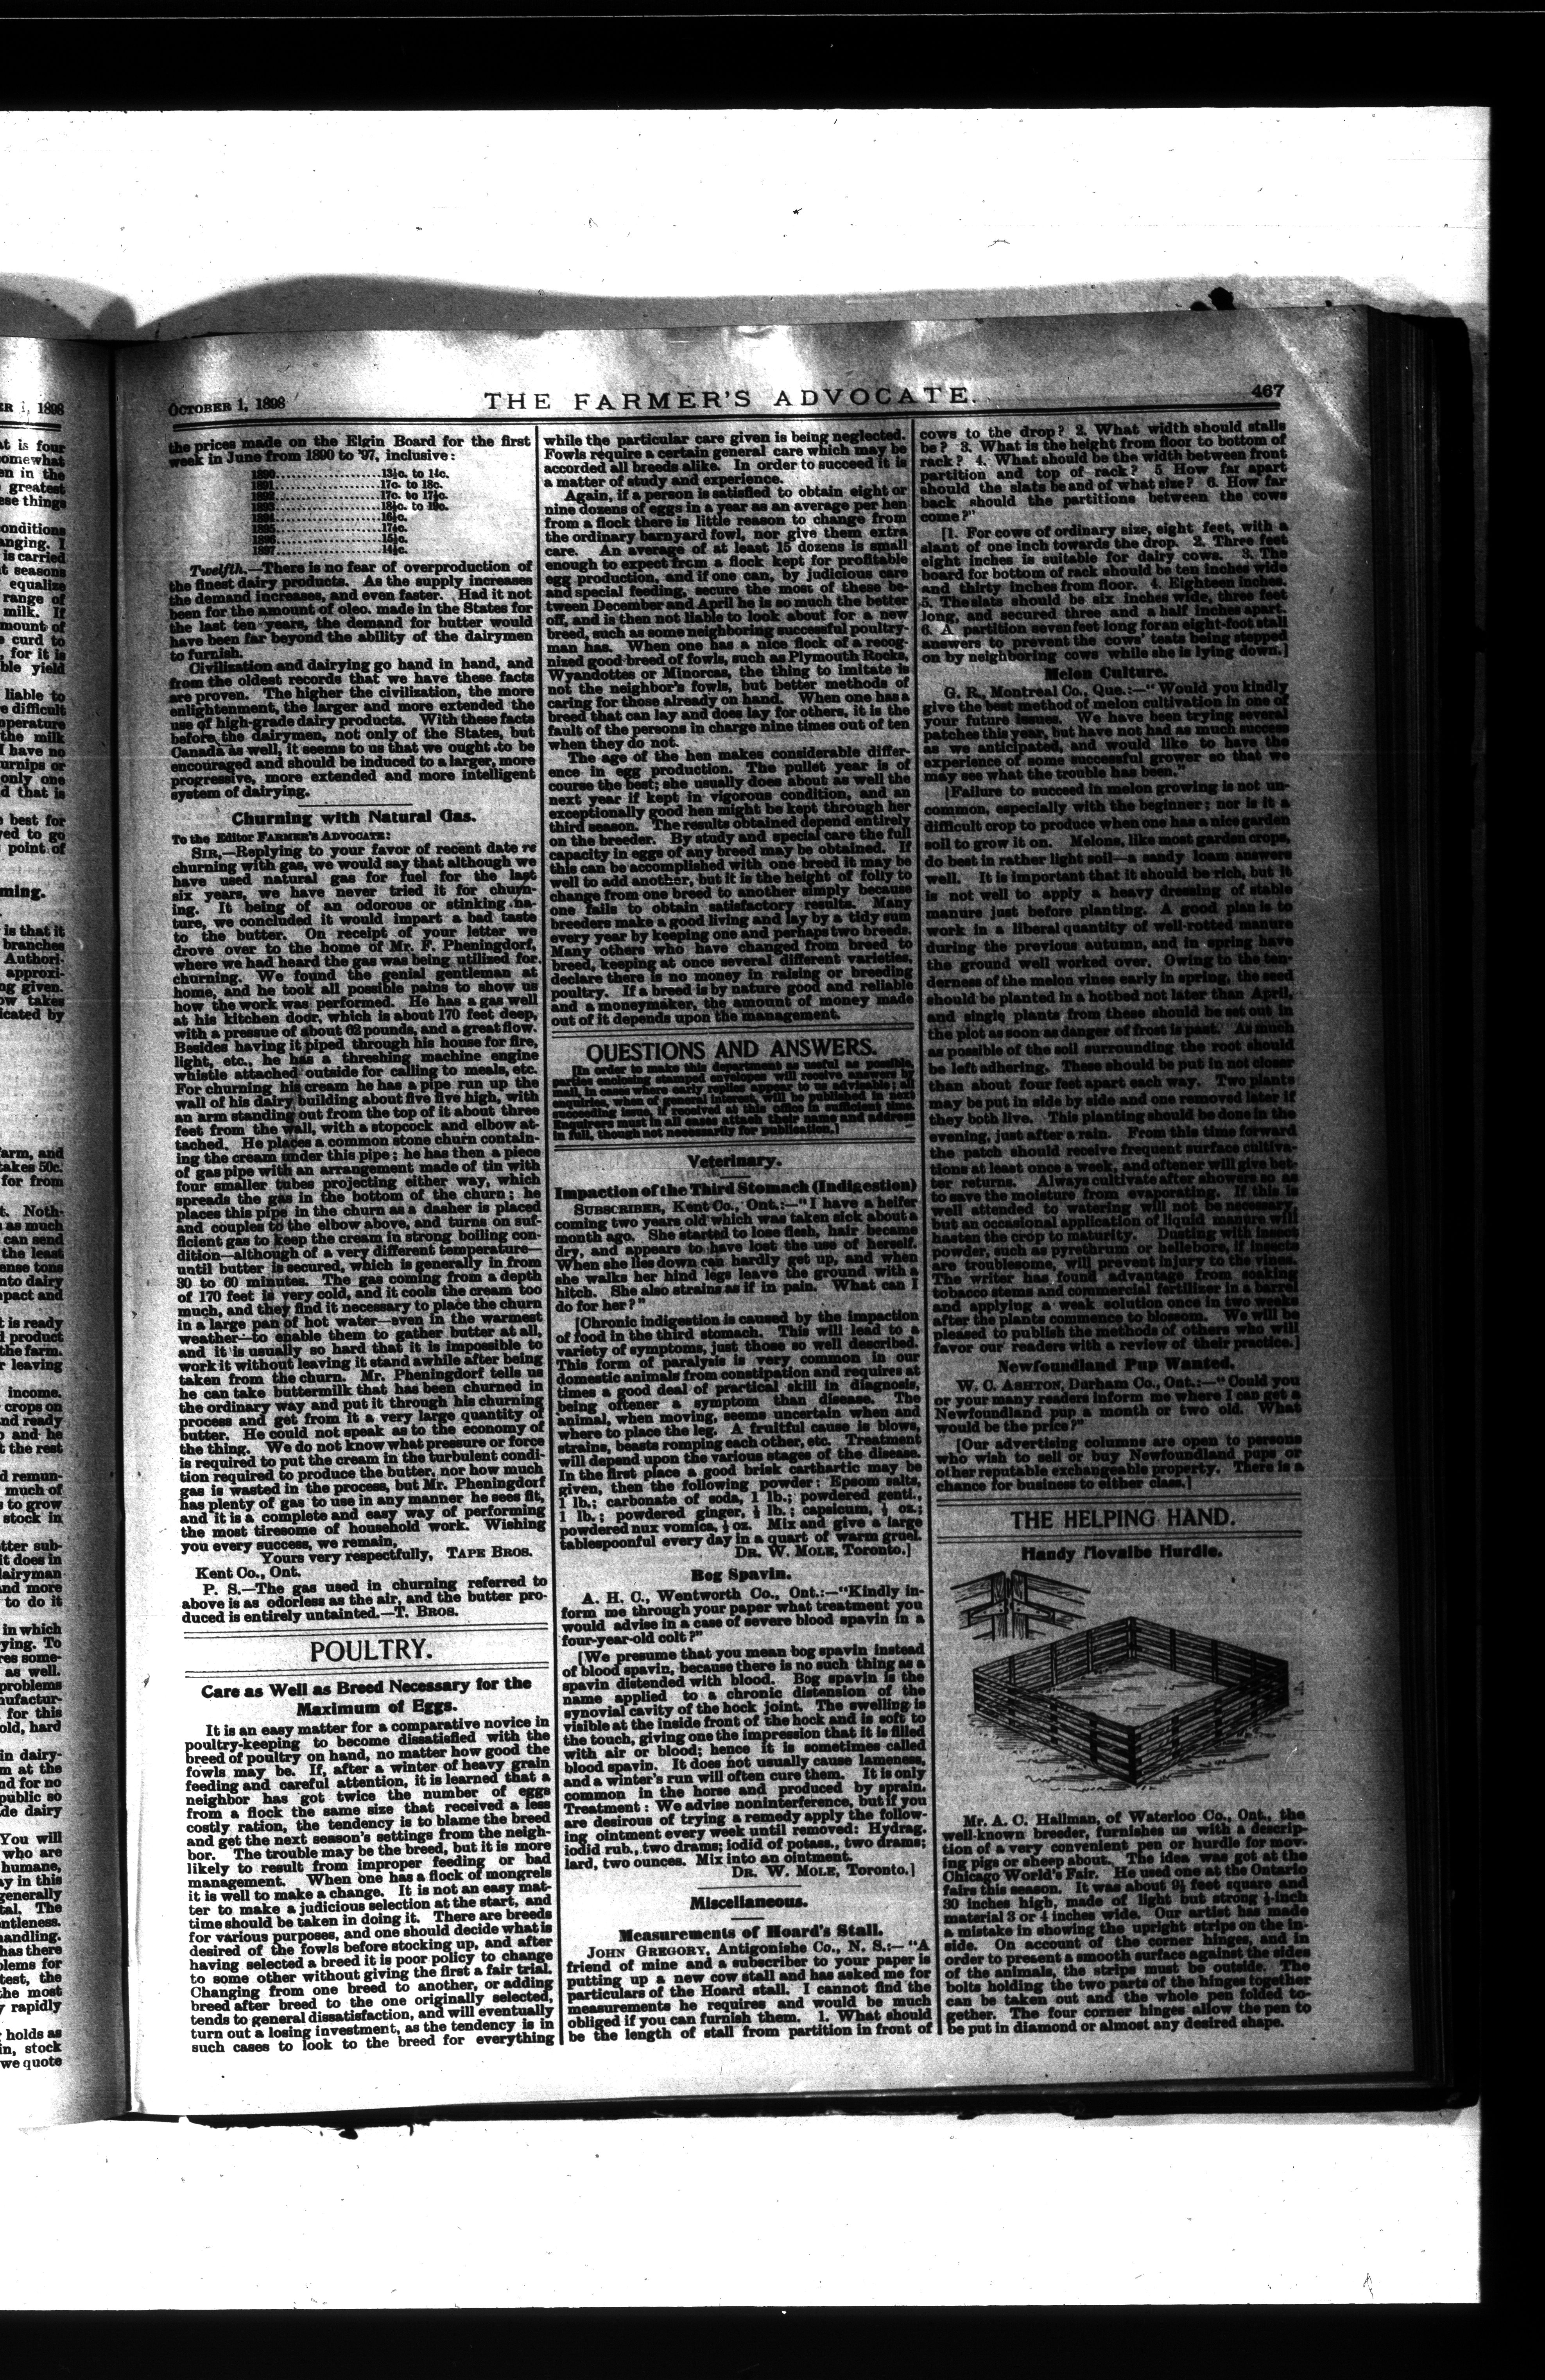 OCTOBER 1, 1898
THE FARMER'S ADVOCATE.
467
the prices made on the Elgin Board for the first
week in June from 1890 to '97, inclusive:
1890 13½c. to 14c.
1891 17c. to 18c.
1892 17c. to 17½c.
1893 18½c. to 19c.
1894 16½c.
1895 17½c.
1896 15½c.
1897 14½c.
Twelfth.—There is no fear of overproduction of
the finest dairy products. As the supply increases
the demand increases, and even faster. Had it not
been for the amount of oleo. made in the States for
the last ten years, the demand for butter would
have been far beyond the ability of the dairymen
to furnish.
Civilization and dairying go hand in hand, and
from the oldest records that we have these facts
are proven. The higher the civilization, the more
enlightenment, the larger and more extended the
use of high-grade dairy products. With these facts
before the dairymen, not only of the States, but
Canada as well, it seems to us that we ought to be
encouraged and should be induced to a larger, more
progressive, more extended and more intelligent
system of dairying.
Churning with Natural Gas.
To the Editor FARMER'S ADVOCATE:
SIR,—Replying to your favor of recent date re
churning with gas, we would say that although we
have used natural gas for fuel for the last
six years, we have never tried it for churn-
ing. It being of an odorous or stinking na-
ture, we concluded it would impart a bad taste
to the butter. On receipt of your letter we
drove over to the home of Mr. F. Pheningdorf,
where we had heard the gas was being utilized for
churning. We found the genial gentleman at
home, and he took all possible pains to show us
how the work was performed. He has a gas well
at his kitchen door, which is about 170 feet deep,
with a pressue of about 62 pounds, and a great flow.
Besides having it piped through his house for fire,
light, etc., he has a threshing machine engine
whistle attached outside for calling to meals, etc.
For churning his cream he has a pipe run up the
wall of his dairy building about five five high, with
an arm standing out from the top of it about three
feet from the wall, with a stopcock and elbow at-
tached. He places a common stone churn contain-
ing the cream under this pipe; he has then a piece
of gas pipe with an arrangement made of tin with
four smaller tubes projecting either way, which
spreads the gas in the bottom of the churn; he
places this pipe in the churn as a dasher is placed
and couples to the elbow above, and turns on suf-
ficient gas to keep the cream in strong boiling con-
dition—although of a very different temperature—
until butter is secured, which is generally in from
30 to 60 minutes. The gas coming from a depth
of 170 feet is very cold, and it cools the cream too
much, and they find it necessary to place the churn
in a large pan of hot water—even in the warmest
weather—to enable them to gather butter at all,
and it is usually so hard that it is impossible to
work it without leaving it stand awhile after being
taken from the churn. Mr. Pheningdorf tells us
he can take buttermilk that has been churned in
the ordinary way and put it through his churning
process and get from it a very large quantity of
butter. He could not speak as to the economy of
the thing. We do not know what pressure or force
is required to put the cream in the turbulent condi-
tion required to produce the butter, nor how much
gas is wasted in the process, but Mr. Pheningdorf
has plenty of gas to use in any manner he sees fit,
and it is a complete and easy way of performing
the most tiresome of household work. Wishing
you every success, we remain,
Yours very respectfully, TAPE BROS.
Kent Co., Ont.
P. S.—The gas used in churning referred to
above is as odorless as the air, and the butter pro-
duced is entirely untainted.—T. BROS.
POULTRY.
Care as Well as Breed Necessary for the
Maximum of Eggs.
It is an easy matter for a comparative novice in
poultry-keeping to become dissatisfied with the
breed of poultry on hand, no matter how good the
fowls may be. If, after a winter of heavy grain
feeding and careful attention, it is learned that a
neighbor has got twice the number of eggs
from a flock the same size that received a less
costly ration, the tendency is to blame the breed
and get the next season's settings from the neigh-
bor. The trouble may be the breed, but it is more
likely to result from improper feeding or bad
management. When one has a flock of mongrels
it is well to make a change. It is not an easy mat-
ter to make a judicious selection at the start, and
time should be taken in doing it. There are breeds
for various purposes, and one should decide what is
desired of the fowls before stocking up, and after
having selected a breed it is poor policy to change
to some other without giving the first a fair trial.
Changing from one breed to another, or adding
breed after breed to the one originally selected,
tends to general dissatisfaction, and will eventually
turn out a losing investment, as the tendency is in
such cases to look to the breed for everything
while the particular care given is being neglected.
Fowls require a certain general care which may be
accorded all breeds alike. In order to succeed it is
a matter of study and experience.
Again, if a person is satisfied to obtain eight or
nine dozens of eggs in a year as an average per hen
from a flock there is little reason to change from
the ordinary barnyard fowl, nor give them extra
care. An average of at least 15 dozens is small
enough to expect from a flock kept for profitable
egg production, and if one can, by judicious care
and special feeding, secure the most of these be-
tween December and April he is so much the better
off, and is then not liable to look about for a new
breed, such as some neighboring successful poultry-
man has. When one has a nice flock of a recog-
nized good breed of fowls, such as Plymouth Rocks,
Wyandottes or Minorcas, the thing to imitate is
not the neighbor's fowls, but better methods of
caring for those already on hand. When one has a
breed that can lay and does lay for others, it is the
fault of the persons in charge nine times out of ten
when they do not.
The age of the hen makes considerable differ-
ence in egg production. The pullet year is of
course the best; she usually does about as well the
next year if kept in vigorous condition, and an
exceptionally good hen might be kept through her
third season. The results obtained depend entirely
on the breeder. By study and special care the full
capacity in eggs of any breed may be obtained. If
this can be accomplished with one breed it may be
well to add another, but it is the height of folly to
change from one breed to another simply because
one fails to obtain satisfactory results. Many
breeders make a good living and lay by a tidy sum
every year by keeping one and perhaps two breeds.
Many others who have changed from breed to
breed, keeping at once several different varieties,
declare there is no money in raising or breeding
poultry. If a breed is by nature good and reliable
and a moneymaker, the amount of money made
out of it depends upon the management.
QUESTIONS AND ANSWERS.
[In order to make this department as useful as possible,
parties enclosing stamped envelopes will receive answers by
mail, in cases where early replies appear to us advisable; all
enquiries, when of general interest, will be published in next
succeeding issue, if received at this office in sufficient time.
Enquirers must in all cases attach their name and address
in full, though not necessarily for publication.]
Veterinary.
Impaction of the Third Stomach (Indigestion)
SUBSCRIBER, Kent Co., Ont.:—"I have a heifer
coming two years old which was taken sick about a
month ago. She started to lose flesh, hair became
dry, and appears to have lost the use of herself.
When she lies down can hardly get up, and when
she walks her hind legs leave the ground with a
hitch. She also strains as if in pain. What can I
do for her?"
[Chronic indigestion is caused by the impaction
of food in the third stomach. This will lead to a
variety of symptoms, just those so well described.
This form of paralysis is very common in our
domestic animals from constipation and requires at
times a good deal of practical skill in diagnosis,
being oftener a symptom than disease. The
animal, when moving, seems uncertain when and
where to place the leg. A fruitful cause is blows,
strains, beasts romping each other, etc. Treatment
will depend upon the various stages of the disease.
In the first place a good brisk carthartic may be
given, then the following powder: Epsom salts,
1 lb.; carbonate of soda, 1 lb.; powdered genti.,
1 lb.; powdered ginger, ½ lb.; capsicum, ½ oz.;
powdered nux vomica, ½ oz. Mix and give a large
tablespoonful every day in a quart of warm gruel.
DR. W. MOLE, Toronto.]
Bog Spavin.
A. H. C., Wentworth Co., Ont.:—"Kindly in-
form me through your paper what treatment you
would advise in a case of severe blood spavin in a
four-year-old colt?"
[We presume that you mean bog spavin instead
of blood spavin, because there is no such thing as a
spavin distended with blood. Bog spavin is the
name applied to a chronic distension of the
synovial cavity of the hock joint. The swelling is
visible at the inside front of the hock and is soft to
the touch, giving one the impression that it is filled
with air or blood; hence it is sometimes called
blood spavin. It does not usually cause lameness,
and a winter's run will often cure them. It is only
common in the horse and produced by sprain.
Treatment: We advise noninterference, but if you
are desirous of trying a remedy apply the follow-
ing ointment every week until removed: Hydrag.
iodid rub., two drams; iodid of potass., two drams;
lard, two ounces. Mix into an ointment.
DR. W. MOLE, Toronto.]
Miscellaneous.
Measurements of Hoard's Stall.
JOHN GREGORY, Antigonishe Co., N. S.:—"A
friend of mine and a subscriber to your paper is
putting up a new cow stall and has asked me for
particulars of the Hoard stall. I cannot find the
measurements he requires and would be much
obliged if you can furnish them. 1. What should
be the length of stall from partition in front of
cows to the drop? 2. What width should stalls
be? 3. What is the height from floor to bottom of
rack? 4. What should be the width between front
partition and top of rack? 5 How far apart
should the slats be and of what size? 6. How far
back should the partitions between the cows
come?"
[1. For cows of ordinary size, eight feet, with a
slant of one inch towards the drop. 2. Three feet
eight inches is suitable for dairy cows. 3. The
board for bottom of rack should be ten inches wide
and thirty inches from floor. 4. Eighteen inches.
5. The slats should be six inches wide, three feet
long, and secured three and a half inches apart.
6. A partition seven feet long for an eight-foot stall
answers to prevent the cows' teats being stepped
on by neighboring cows while she is lying down.]
Melon Culture.
G. R., Montreal Co., Que.:—"Would you kindly
give the best method of melon cultivation in one of
your future issues. We have been trying several
patches this year, but have not had as much success
as we anticipated, and would like to have the
experience of some successful grower so that we
may see what the trouble has been."
[Failure to succeed in melon growing is not un-
common, especially with the beginner; nor is it a
difficult crop to produce when one has a nice garden
soil to grow it on. Melons, like most garden crops,
do best in rather light soil—a sandy loam answers
well. It is important that it should be rich, but it
is not well to apply a heavy dressing of stable
manure just before planting. A good plan is to
work in a liberal quantity of well-rotted manure
during the previous autumn, and in spring have
the ground well worked over. Owing to the ten-
derness of the melon vines early in spring, the seed
should be planted in a hotbed not later than April,
and single plants from these should be set out in
the plot as soon as danger of frost is past. As much
as possible of the soil surrounding the root should
be left adhering. These should be put in not closer
than about four feet apart each way. Two plants
may be put in side by side and one removed later if
they both live. This planting should be done in the
evening, just after a rain. From this time forward
the patch should receive frequent surface cultiva-
tions at least once a week, and oftener will give bet-
ter returns. Always cultivate after showers so as
to save the moisture from evaporating. If this is
well attended to watering will not be necessary,
but an occasional application of liquid manure will
hasten the crop to maturity. Dusting with insect
powder, such as pyrethrum or hellebore, if insects
are troublesome, will prevent injury to the vines.
The writer has found advantage from soaking
tobacco stems and commercial fertilizer in a barrel
and applying a weak solution once in two weeks
after the plants commence to blossom. We will be
pleased to publish the methods of others who will
favor our readers with a review of their practice.]
Newfoundland Pup Wanted.
W. C. ASHTON, Durham Co., Ont.:—"Could you
or your many readers inform me where I can get a
Newfoundland pup a month or two old. What
would be the price?"
[Our advertising columns are open to persons
who wish to sell or buy Newfoundland pups or
other reputable exchangeable property. There is a
chance for business to either class.]
THE HELPING HAND.
Handy Movalbe Hurdle.
Mr. A. C. Hallman, of Waterloo Co., Ont., the
well-known breeder, furnishes us with a descrip-
tion of a very convenient pen or hurdle for mov-
ing pigs or sheep about. The idea was got at the
Chicago World's Fair. He used one at the Ontario
fairs this season. It was about 9½ feet square and
30 inches high, made of light but strong ½-inch
material 3 or 4 inches wide. Our artist has made
a mistake in showing the upright strips on the in-
side. On account of the corner hinges, and in
order to present a smooth surface against the sides
of the animals, the strips must be outside. The
bolts holding the two parts of the hinges together
can be taken out and the whole pen folded to-
gether. The four corner hinges allow the pen to
be put in diamond or almost any desired shape.